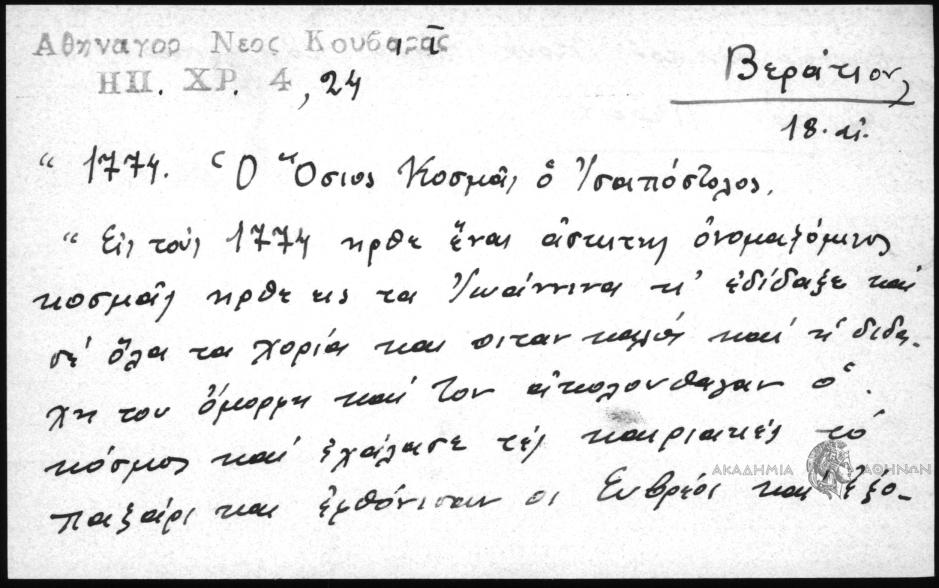 Αθηναγορ Νεος Κουβαρᾶς
ΗΠ. ΧΡ. 4, 24
Βεράτιον
18. αἰ.
“ 1774. Ὁ Ὅσιος Κοσμᾶς ὁ Ἰσαπόστολος.
“ Εἰς τοὺς 1774 ηρθε ἕναι ἀσκητης ὀνομαζόμενος
κοσμᾶς ηρθε εις τα Ἰωάννινα κ’ ἐδίδαξε καὶ
σὲ ὅλα τα χορία και οιταν καλὸς καὶ κἱ διδα-
χη του ὄμορφη καὶ τον αἰκολουθαγαν ὁ
κόσμος καὶ ἐχάλασε τὲς και­ριακὲς τὸ
παζάρι και ἐφθόνισαν οι Ἑυβρέοι και ἐξο-
ΑΚΑΔΗΜΙΑ ΑΘΗΝΩΝ